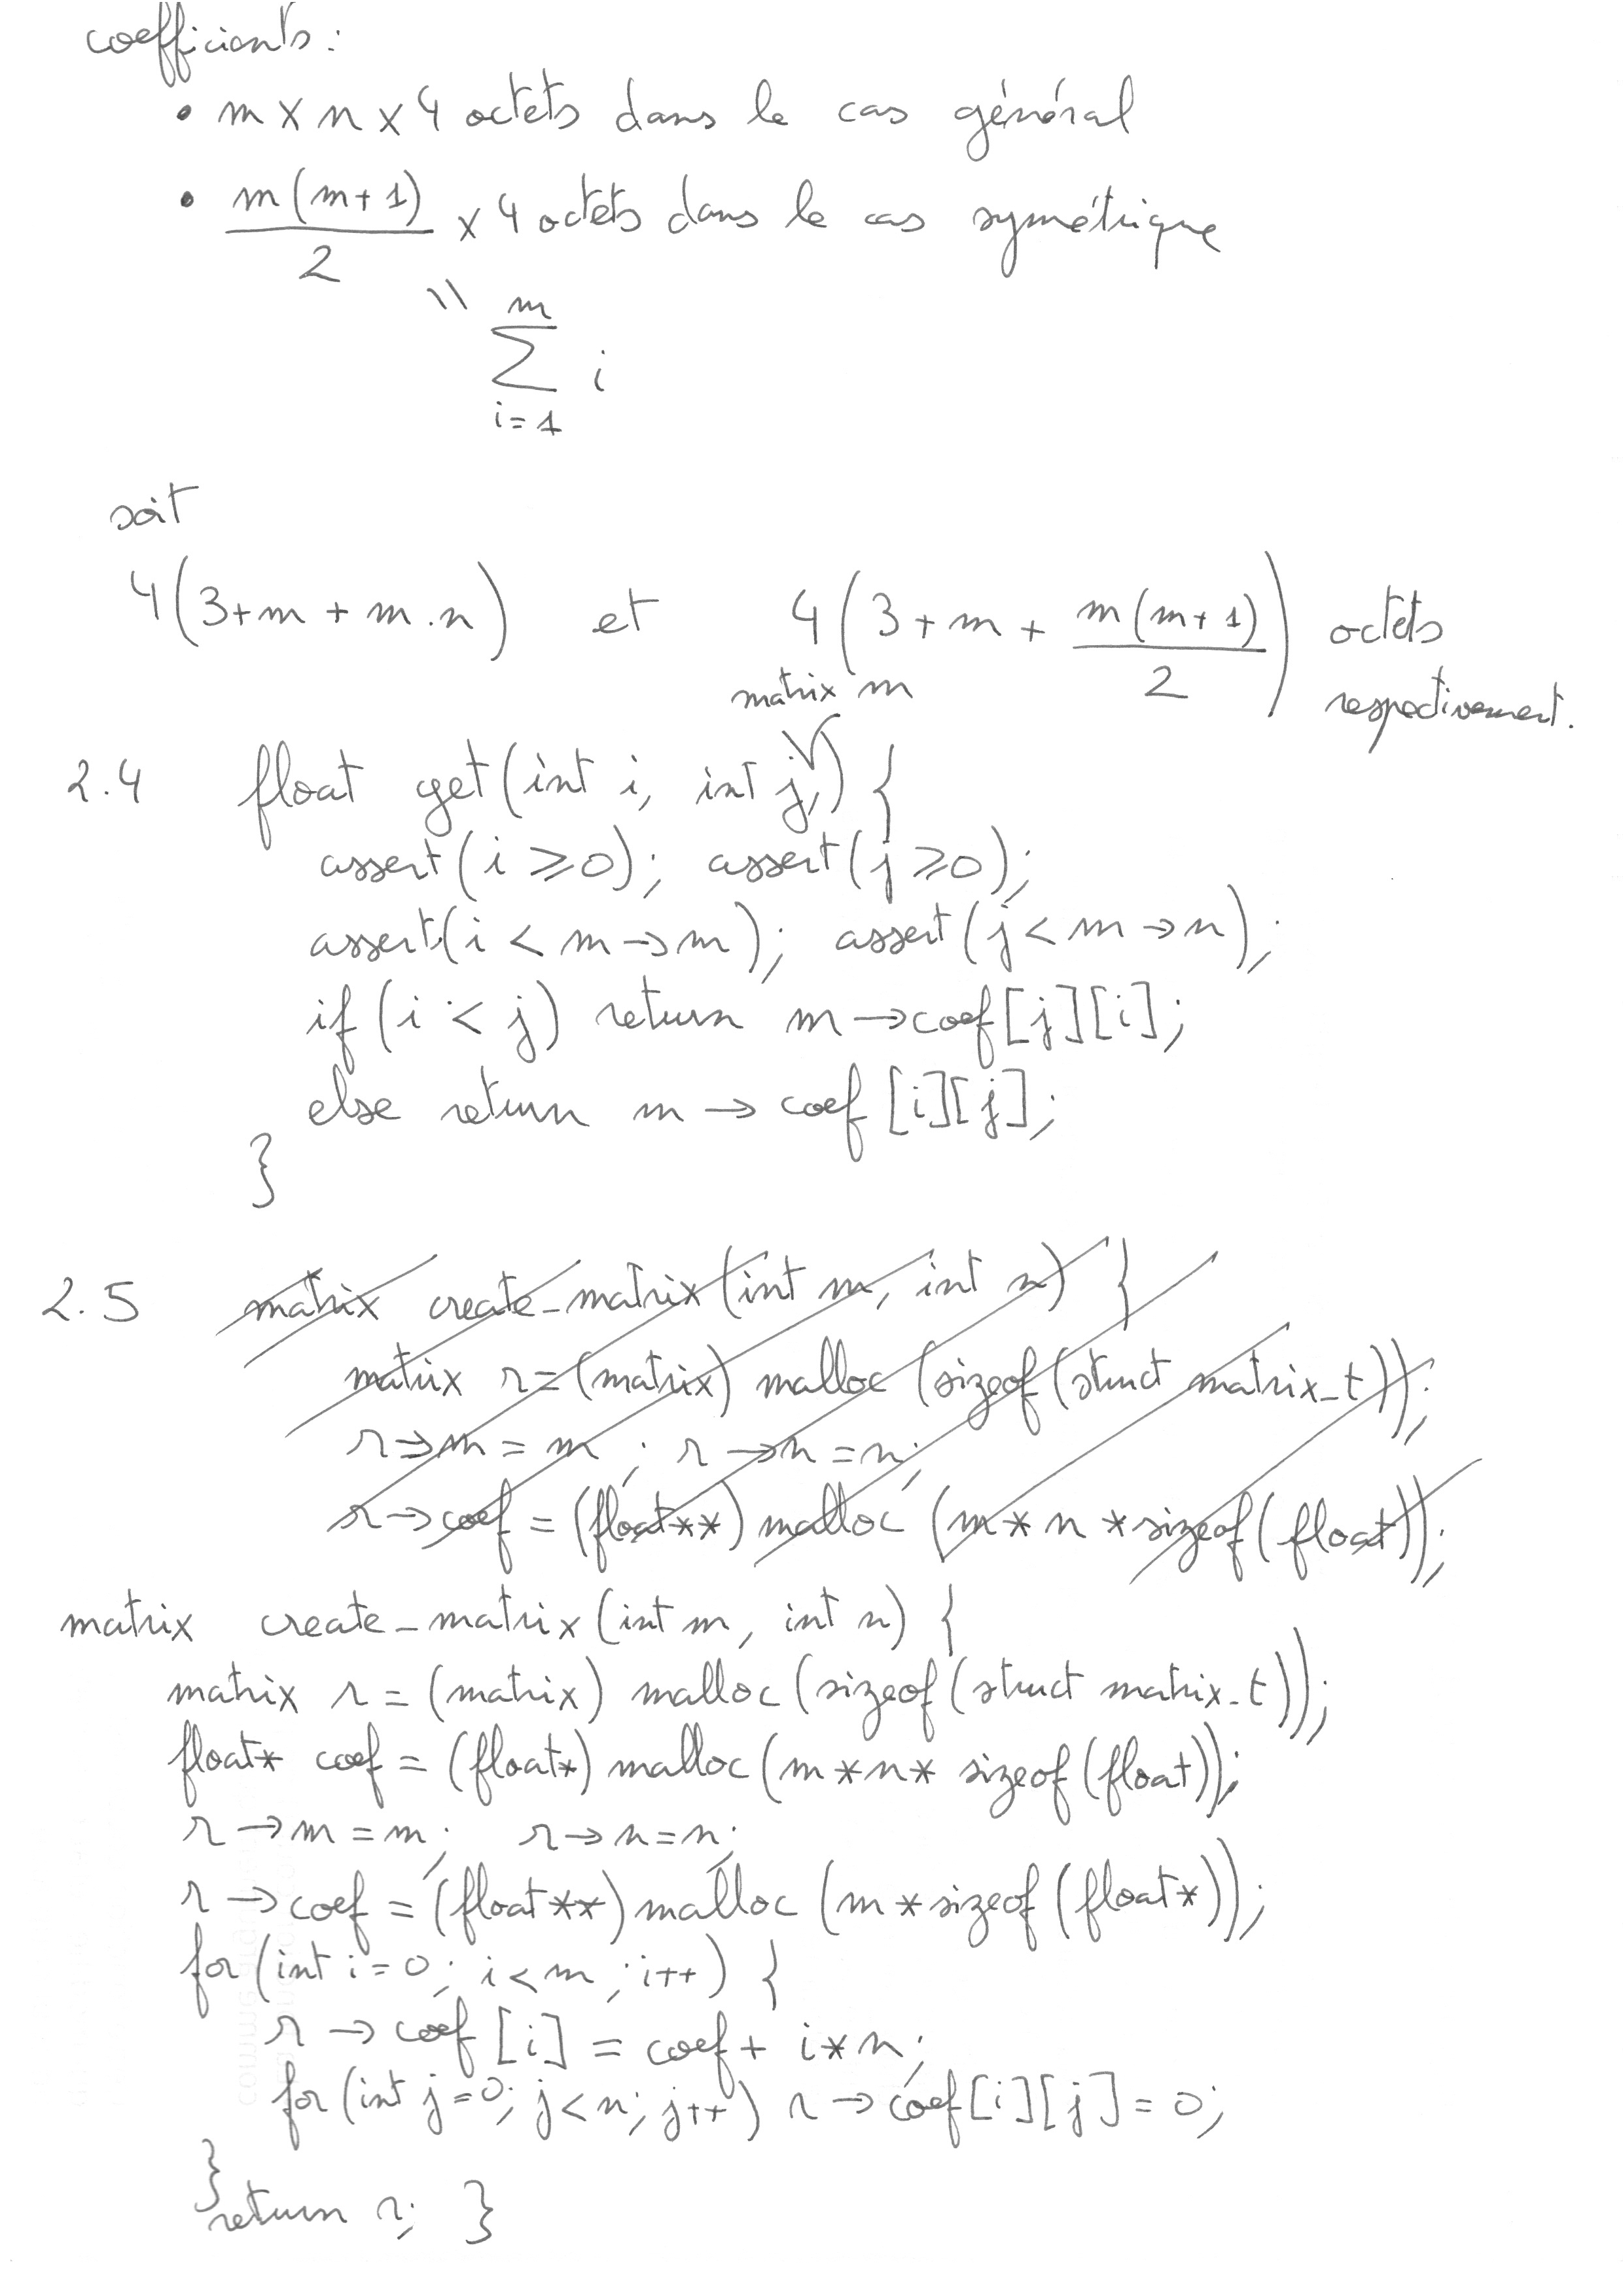 coefficients:
• m × n × 4 octets dans le cas général
• m(m+1)/2 × 4 octets dans le cas symétrique
\\ m
∑ i
i=1
soit
4(3+m + m.n) et 4(3+m + m(m+1)/2) octets
respectivement.
matrix m
2.4 float get(int i, int j,) {
assert(i ⩾0); assert(j ⩾0);
assert(i < m→m); assert(j < m→n);
if (i < j) return m→coef[j][i];
else return m→coef[i][j];
}
2.5 matrix create_matrix(int m, int n) {
matrix r=(matrix) malloc (sizeof(struct matrix_t));
r→m = m ; r→n = n;
r→coef = (float**) malloc (m*n *sizeof(float));
matrix create_matrix(int m, int n) {
matrix r = (matrix) malloc (sizeof(struct matrix_t));
float* coef = (float*) malloc(m*n* sizeof(float));
r→m = m; r→n=n;
r→coef = (float**) malloc (m*sizeof(float*));
for(int i=0; i<m ; i++) {
r→coef [i] = coef + i*n;
for(int j=0; j<n; j++) r→coef[i][j] = 0;
}
return r; }